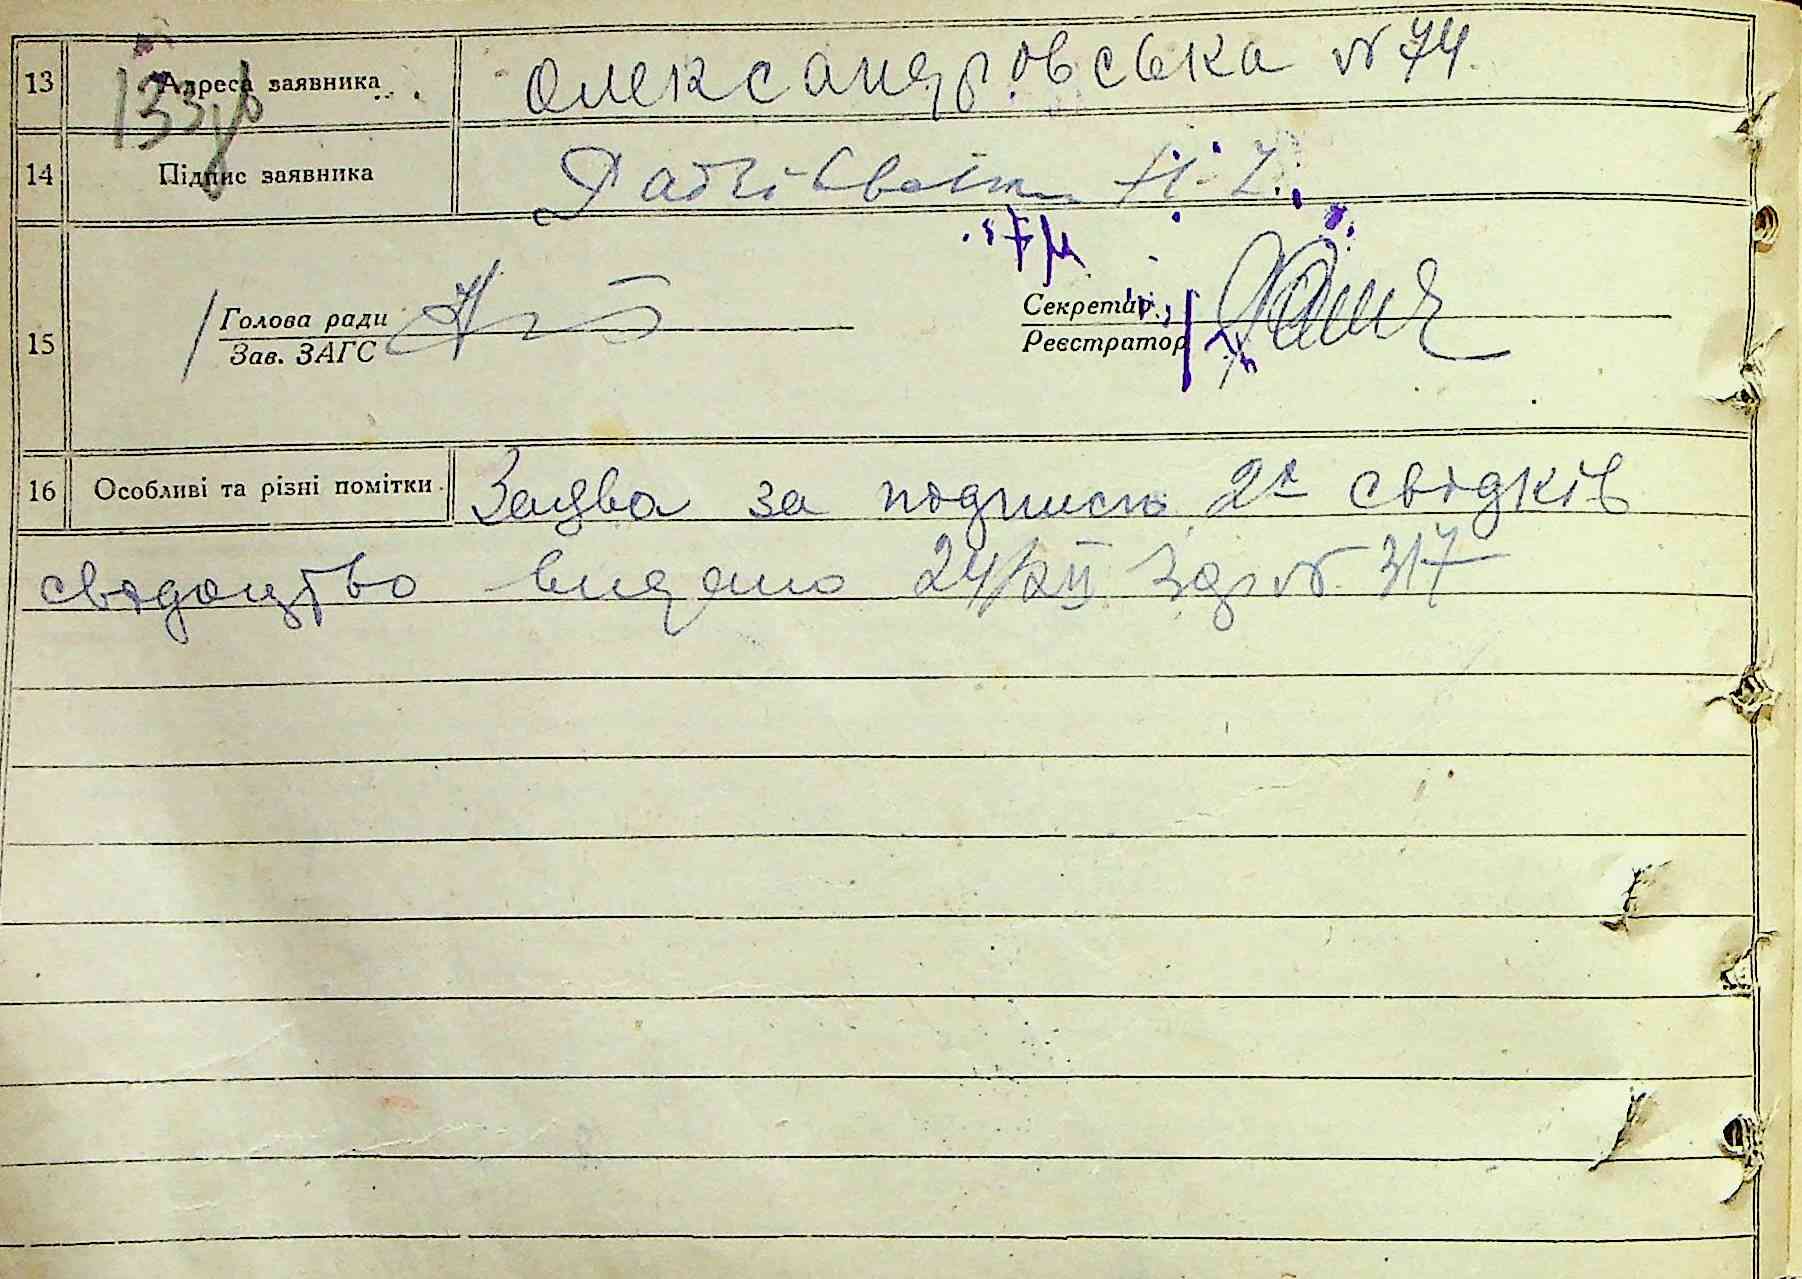 13 Адреса заявника Олександровська № 74
14 Підпис заявника
15 Голова ради Секретар
Зав. ЗАГС Реєстратор
16 Особливі та різні помітки Заява за подписю 2х свідків
свідоцтво видано 24/XII № 317